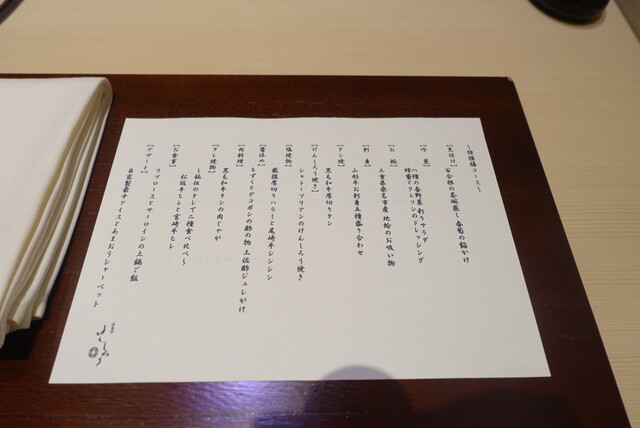 ～特撰極コース～
【先付け】 百合根の茶碗蒸し 春菊の餡かけ
【冷菜】
八種の春野菜彩りサラダ
蜂蜜とクレソンのドレッシング
【お椀】
三重県桑名市産 地蛤のお吸い物
【刺身】
山形牛お刺身五種盛り合わせ
【タン焼】
黒毛和牛厚切りタン
【けんしろう焼き】
シャトーブリアンのけんしろう焼き
【塩焼物】
厳撰厚切りハラミと尾崎牛シンシン
【箸休め】
もずくとデコポンの酢の物 土佐酢ジュレがけ
【肉料理】
黒毛和牛タンの肉じゃが
【タレ焼物】
～秘伝のタレで二種食べ比べ～
松阪牛ヒレと宮崎牛ヒレ
【お食事】
リブロースとサーロインの土鍋ご飯
【デザート】
自家製最中アイスとあまおうシャーベット
けんしろう